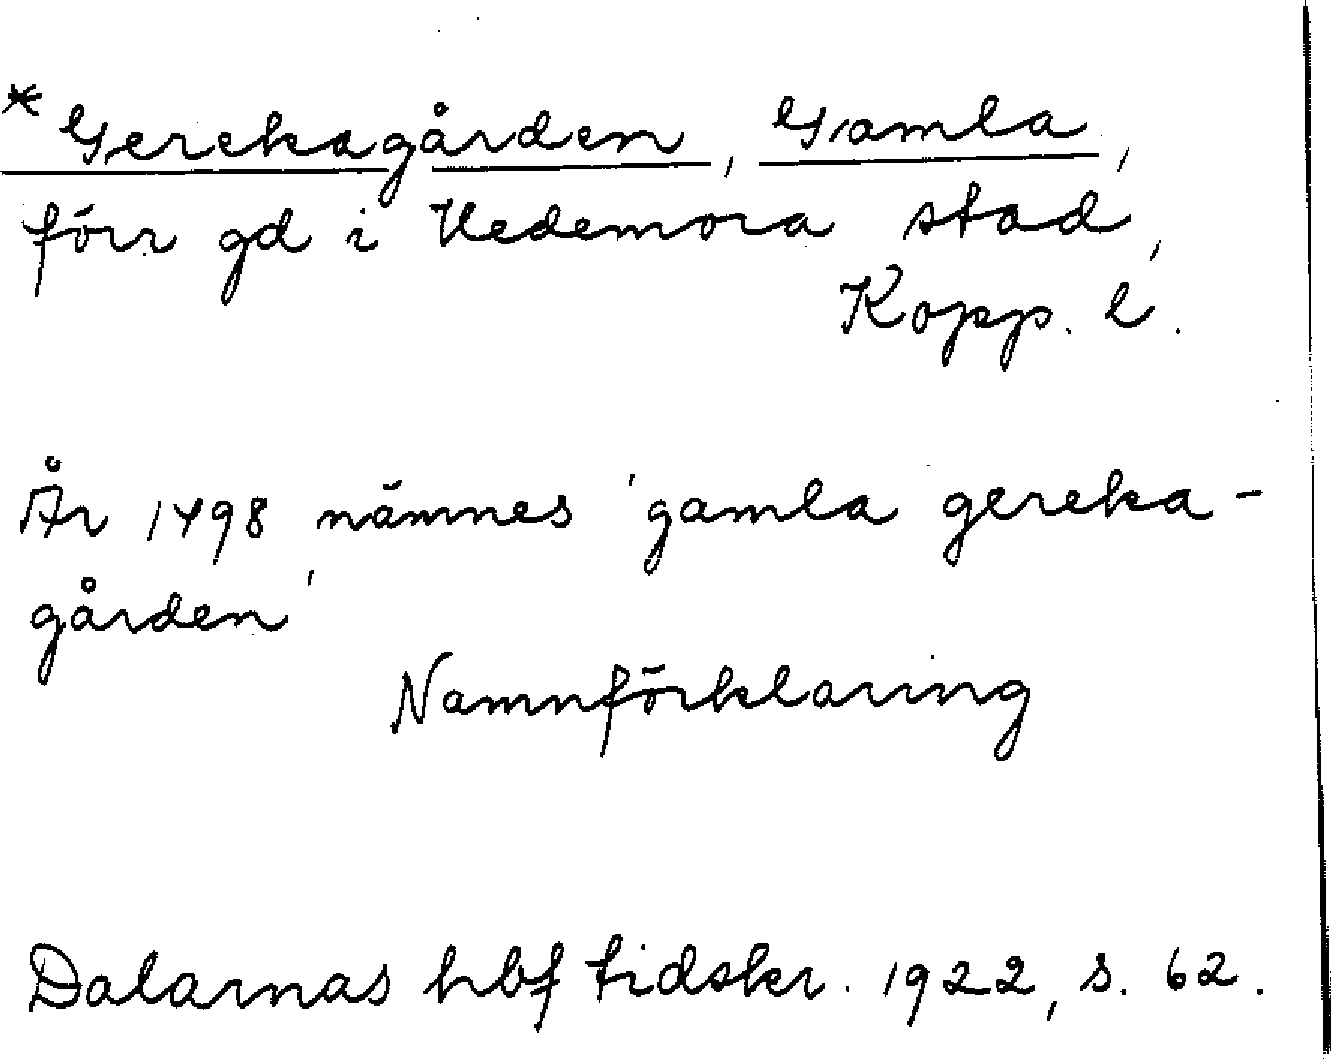 * Gerekagården, Gamla,
förr gd i Hedemora stad,
Kopp. l.
År 1498 nämnes 'gamla gereka-
gården'
Namnförklaring
Dalarnas hbf tidskr. 1922, s. 62.